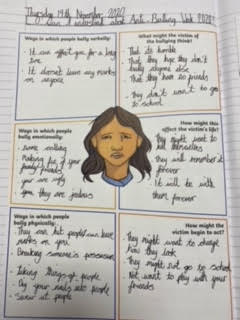 Thursday 19th November 2020
Can I understand about Anti-Bullying Week 2020?
Ways in which people bully verbally:
• It can affect you for a long
time
• It doesn't leave any marks on
anyone
What might the victim of
the bullying think?
• That its horrible
• That they hope they don't
bully anyone else
• That they have no friends
• they don't want to go
to school
Ways in which people
bully emotionally:
• name calling
• Making fun of your
family friends
• you are ugly
• you they are jealous
How might this
affect the victim's life?
• They might want to
kill themselves
• they will remember it
forever
• It will be with
them forever
Ways in which people
bully physically:
• They are hit people can leave
marks on you
• Breaking someone's possessions
• Taking things of people
• people
• Swear at people
How might the
victim begin to act?
• They might want to change
how they look
• They might not go to school
• Not want to play with your
friends